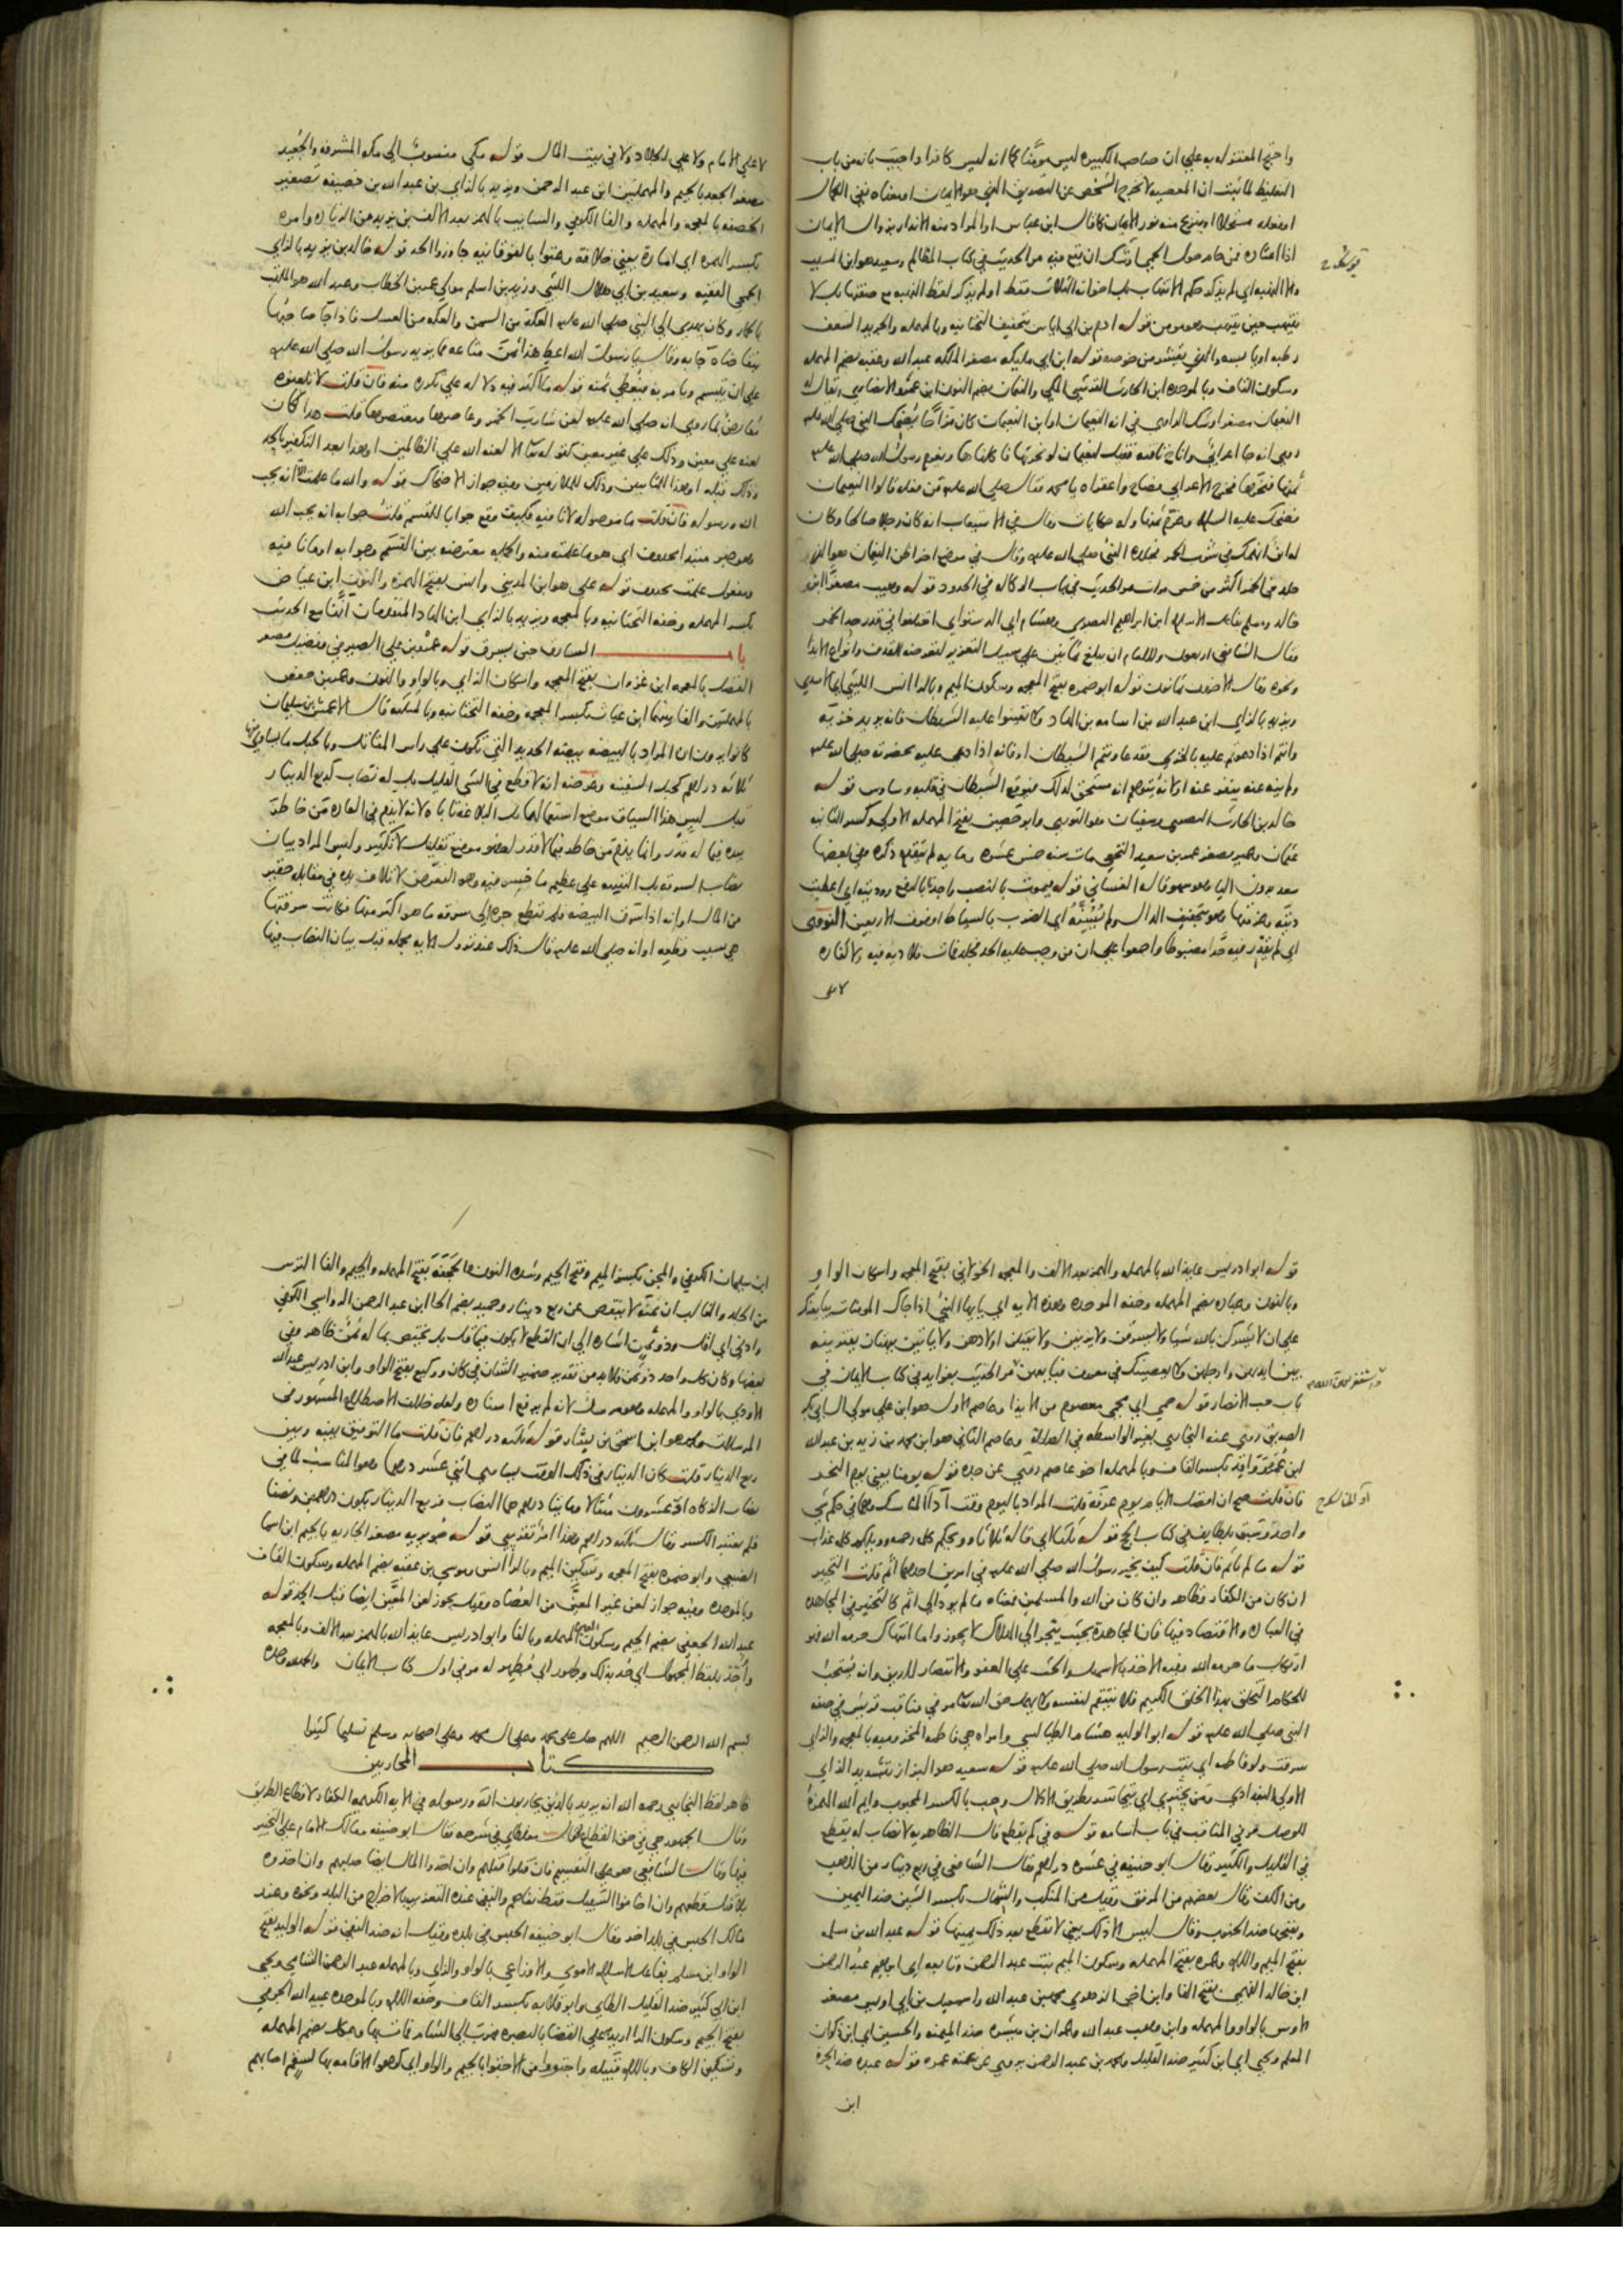 واحتج المعتزلة به على ان صاحب الكبيرة ليس مؤمنا كما انه ليس كافرا واجيب بانه من باب
التغليظ لما ثبت ان المعصية لا تخرج الشخص عن التصديق الذي هو الايمان او معناه نفي الكمال
او فعله مستحلا او ينزع منه نور الايمان كما قال ابن عباس او المراد منه الانذار بزوال الايمان
اذا اعتاده فمن حام حول الحمى اوشك ان يقع فيه مر الحديث في كتاب المظالم وسعيد هو ابن المسيب
ينتهب حين ينتهب وهو مؤمن قوله ادم بن ابي اياس بتخفيف التحتانية وبالمهملة والجريد السعف
رطبه او يابسه والذي يقشر من خوصه قوله ابن ابي مليكة مصغر الملكة عبد الله وعقبة بضم المهملة
وسكون القاف وبالموحدة ابن الحارث القرشي المكي والنعمان بضم النون ابن عمرو الانصاري ويقال له
النعيمان مصغرا وشك الراوي في انه النعيمان او ابن النعيمان كان مزاحا يضحك النبي صلى الله عليه
روي انه جا اعرابي واناخ ناقته فقيل لنعيمان لو نحرتها فاكلناها ويغرم رسول الله صلى الله عليه
ثمنها فنحرها فخرج الاعرابي فصاح واعقراه يا محمد فقال صلى الله عليه من فعله قالوا النعيمان
فضحك عليه السلام وغرم ثمنها وله حكايات وقال في الاستيعاب انه كان رجلا صالحا وكان
له ابن انهمك في شرب الخمر فجلده النبي صلى الله عليه وقال في موضع اخر اظن النعيمان هو الذي
جلد في الخمر اكثر من خمس مرات مر الحديث في باب الوكالة في الحدود قوله وهيب مصغرا ابن
خالد ومسلم بفاعل الاسلام ابن ابراهيم البصري وهشام اي الدستوائي اختلفوا في قدر حد الخمر
فقال الشافعي اربعون وللامام ان يبلغ ثمانين على سبيل التعزير لتعرضه القذف وانواع الايذا
ونحوه وقال الاخرون ثمانون قوله ابو ضمرة بفتح المعجمة وسكون الميم وبالرا انس الليثي
ويزيد بالزاي ابن عبد الله بن اسامة بن الهاد ولا تعينوا عليه الشيطان فانه يريد خزيه
وانتم اذا دعوتم عليه بالخزي فقد عاونتم الشيطان او فانه اذا دعي عليه بحضرته صلى الله عليه
ولم ينه عنه ينفر عنه او لانه يتوهم انه مستحق لذلك فيوقع الشيطان في قلبه وساوس قوله
خالد بن الحارث البصري وسفيان هو الثوري وابو حصين بفتح المهملة الاولى وكسر الثانية
عثمان وعمير مصغر عمر بن سعيد النخعي مات سنة خمس عشرة وماية لم يتقدم ذكره وفي بعضها
سعد بدون اليا وهو سهو قاله الغساني قوله فيموت بالنصب واجد بالرفع ووديته اي اعطيت
ديته وغرمتها وهو بتخفيف الدال ولم يسنه اي الضرب بالسياط او فوق الاربعين النووي
اي لم يقدر فيه حدا مضبوطا واجمعوا على ان من وجب عليه الحد فجلد فمات فلا دية فيه ولا كفارة
لا على
لا على الامام ولا على الجلاد ولا في بيت المال قوله مكي منسوب الى مكة المشرفة والجعيد
مصغر الجعد بالجيم والمهملتين ابن عبد الرحمن ويزيد بالزاي بن عبد الله بن خصيفة تصغير
الخصفة بالمعجمة والمهملة والفا الكوفي والسائب بالهمز بعد الالف بن يزيد من الزيادة وامرة
بكسر الهمزة اي امارة يعني خلافة وعتوا بالفوقانية جاوزوا الحد قوله خالد بن يزيد بالزاي
الجمحي الفقيه وسعيد بن ابي هلال الليثي وزيد بن اسلم مولى عمر بن الخطاب وعبد الله هو الملقب
بالحمار وكان يهدي الى النبي صلى الله عليه العكة من السمن والعكة من العسل فاذا جا صاحبها
يتقاضاه جا به وقال يا رسول الله اعط هذا ثمن متاعه فما يزيد رسول الله صلى الله عليه
على ان يتبسم ويامر به فيعطى ثمنه قوله ما اكثر فيه دلالة على تكرره منه فان قلت لا تلعنوه
معارض بما روي انه صلى الله عليه لعن شارب الخمر وعاصرها ومعتصرها قلت هذا كان
لعنه على معين وذلك على غير معين كقوله تعالى الا لعنة الله على الظالمين او هذا بعد التكفير بالحد
وذلك قبله او هذا للتائبين وذلك للملازمين وفيه جواز الاضحاك قوله والله ما علمت الا انه يحب
الله ورسوله فان قلت ما موصولة لا نافية فكيف وقع جوابا للقسم قلت جوابه انه يحب الله
وهو خبر مبتدا محذوف اي هو ما علمته منه والجملة معترضة بين القسم وجوابه او ما نافية
ومفعول علمت محذوف قوله علي هو ابن المديني وانس بفتح الهمزة والنون ابن عياض
بكسر المهملة وخفة التحتانية وبالمعجمة ويزيد بالزاي ابن الهاد المتقدمان انفا مع الحديث
باب السارق حين يسرق قوله عمرو بن علي الصيرفي وفضيل مصغر
الفضل بالمعجمة ابن غزوان بفتح المعجمة واسكان الزاي وبالواو والنون وعمر بن حفص
بالمهملتين والفا بينهما ابن غياث بكسر المعجمة وخفة التحتانية وبالمثلثة قال الاعمش بن سليمان
كانوا يرون ان المراد بالبيضة بيضة الحديد التي تكون على راس المقاتل وبالحبل ما يساوي
ثلاثة دراهم كحبل السفينة وغرضه انه لا قطع في الشي القليل بل له نصاب كربع الدينار
قيل ليس هذا السياق موضع استعمالهما بل البلاغة تاباه لانه لا يذم في العادة من خاطر
بيده فيما له قدر وانما يذم من خاطر فيما لا قدر له فهو موضع تقليل لا تكثير وليس المراد بيان
نصاب السرقة بل التنبيه على عظيم ما خسر فيه وهو التعرض لاتلاف يده في مقابلة حقير
من المال او انه اذا سرق البيضة فلم تقطع جره الى سرقة ما هو اكثر منها فكانت سرقتها
هي سبب قطعه او انه صلى الله عليه قال ذلك عند نزول الاية مجملة قبل بيان النصاب فيها
قوله ابو ادريس عايذ الله بالمهملة والهمز بعد الالف والمعجمة الخولاني بفتح المعجمة واسكان الواو
وبالنون وعبادة بضم المهملة وخفة الموحدة وهذه الاية اي يا ايها النبي اذا جاك المومنات يبايعنك
على ان لا يشركن بالله شيا ولا يسرقن ولا يزنين ولا يقتلن اولادهن ولا ياتين ببهتان يفترينه
بين ايديهن وارجلهن ولا يعصينك في معروف فبايعهن مر الحديث بفوايده في كتاب الايمان في
باب حب الانصار قوله حمى اي محمي معصوم من الايذا وعاصم الاول هو ابن علي مولى
الصديق روى عنه البخاري بغير الواسطة في الصلاة وعاصم الثاني هو ابن محمد بن زيد بن عبد الله
ابن عمر وواقد بكسر القاف وبالمهملة اخو عاصم روى عن جده قوله يومنا يعني يوم النحر
فان قلت صح ان افضل الايام يوم عرفة قلت المراد باليوم وقت ادا المناسك وهما في حكم شي
واحد وسبق بلطايفه في كتاب الحج قوله ثلاثا اي قاله ثلاثا وويحكم كلمة رحمة وويلكم كلمة عذاب
قوله ما لم ياثم فان قلت كيف يخير رسول الله صلى الله عليه في امرين احدهما اثم قلت التخيير
ان كان من الكفار فظاهر وان كان من الله والمسلمين فمعناه ما لم يود الى اثم كالتخيير في المجاهدة
في العبادة والاقتصاد فيها فان المجاهدة بحيث ينجر الى الهلاك لا يجوز واما انتهاك حرمة الله فهو
ارتكاب ما حرمه الله وفيه الاخذ بالاسهل والحث على العفو والانتصار للدين وانه يستحب
للحكام التخلق بهذا الخلق الكريم فلا ينتقم لنفسه ولا يهمل حق الله تعالى مر في مناقب قريش في صفة
النبي صلى الله عليه قوله ابو الوليد هشام الطيالسي وامراة هي فاطمة المخزومية بالمعجمة والزاي
سرقت ولو فاطمة اي بنت رسول الله صلى الله عليه قوله سعيد هو البزاز بتشديد الزاي
الاولى البغدادي ومن يجتري اي يتجاسر بطريق الادلال وحب بالكسر المحبوب وايم الله الهمزة
للوصل مر في المناقب في باب اسامة قوله في كم يقطع قال الظاهرية لا نصاب له يقطع
في القليل والكثير وقال ابو حنيفة في عشرة دراهم وقال الشافعي في ربع دينار من الذهب
ومن الكف وقال بعضهم من المرفق وقيل من المنكب والشمال بكسر الشين ضد اليمين
وبفتحها ضد الجنوب وقال ليس الا ذلك يعني لا تقطع بعد ذلك يمينها قوله عبد الله بن مسلمة
بفتح الميم واللام وعمرة بفتح المهملة وسكون الميم بنت عبد الرحمن وتابعه اي ابراهيم عبد الرحمن
ابن خالد الفهمي بفتح الفا وابن اخي الزهري محمد بن عبد الله واسمعيل بن ابي اويس مصغر
الاوس بالواو والمهملة وابن وهب عبد الله وعمران بن ميسرة ضد الميمنة والحسين اي ابن ذكوان
المعلم ويحيى اي ابن كثير ضد القليل ومحمد بن عبد الرحمن يروي عن عمته عمرة قوله عبدة ضد الحرة
ابن
ابن سليمان الكوفي والمجن بكسر الميم وفتح الجيم وشدة النون والحجفة بفتح المهملة والجيم والفا الترس
من الجلد والغالب ان ثمنه لا ينقص عن ربع دينار وحميد بضم الحا ابن عبد الرحمن الرواسي الكوفي
وادنى اي اقل وذو ثمن اشارة الى ان القطع لا يكون فيما قل بل يختص بما له ثمن ظاهر وفي
بعضها وكان كل واحد ذو ثمن فلا بد من تقدير ضمير الشان في كان ووكيع بفتح الواو وابن ادريس عبد الله
الاودي بالواو والمهملة وهو مرسل لانه لم يرفع اسناده ولعله خلاف الاصطلاح المشهور في
المرسلات ومحمد هو ابن اسحق بن يسار قوله ثلاثة دراهم فان قلت ما التوفيق بينه وبين
ربع الدينار قلت كان الدينار في ذلك الوقت يساوي اثني عشر درهما وهو المناسب لما في
نصاب الزكاة اذ عشرون مثقالا وماتا درهم هما النصاب فربع الدينار يكون درهمين ونصفا
فلم يعتبر الكسر وقال ثلاثة دراهم وهذا امر تقريبي قوله جويرية مصغر الجارية بالجيم ابن اسما
الضبعي وابو ضمرة بفتح المعجمة وتسكين الميم وبالرا انس وموسى بن عقبة بضم المهملة وسكون القاف
وبالموحدة وفيه جواز لعن غير المعين من العصاة وقيل يجوز لعن المعين ايضا قبل الحد قوله
عبد الله الجعفي بضم الجيم وسكون العين المهملة وبالفا وابو ادريس عايذ الله بالهمز بعد الالف وبالمعجمة
واخذ بلفظ المجهول اي حد بذلك وطهور اي مطهر له مر في اول كتاب الايمان والحمد لله وحده
بسم الله الرحمن الرحيم اللهم صل على محمد وعلى ال محمد وعلى اصحابه وسلم تسليما كثيرا
كتاب المحاربين
ظاهر لفظ البخاري رحمه الله انه يريد بالذين يحاربون الله ورسوله في الاية الكريمة الكفار لا قطاع الطريق
وقال الجمهور هي في حق القطاع فقال ابو حنيفة ومالك الامام على التخيير
فيها وقال الشافعي هو على التقسيم فان قتلوا قتلهم وان اخذوا المال ايضا صلبهم وان اخذوه
بلا قتل قطعهم وان اخافوا السبيل فقط نفاهم والنفي عنده التعزير بالاخراج من البلد ونحوه وعند
مالك الحبس في بلد اخر وقال ابو حنيفة الحبس في بلده وقيل انه ضد النفي قوله الوليد بفتح
الواو ابن مسلم بفاعل الاسلام الاموي والاوزاعي بالواو والزاي وبالمهملة عبد الرحمن الشامي ويحيى
ابن ابي كثير ضد القليل الطائي وابو قلابة بكسر القاف وخفة اللام وبالموحدة عبد الله الجرمي
بفتح الجيم وسكون الرا اريد على القضا بالبصرة فهرب الى الشام فمات بها وعكل بضم المهملة
وتسكين الكاف وباللام قبيلة واجتووا من الاجتوا بالجيم والواو اي كرهوا الاقامة بها لسقم اصابهم